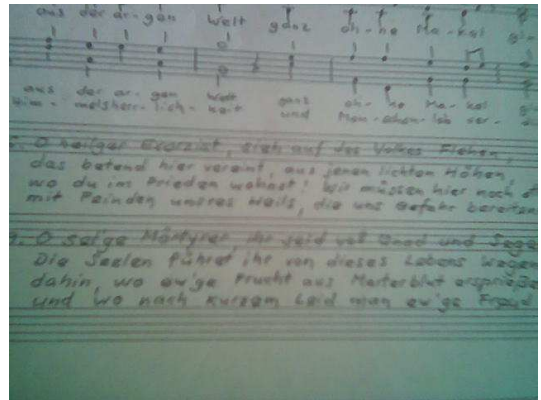 aus der ar-gen Welt ganz oh-ne Ma-kel
aus der ar-gen Welt ganz oh-ne Ma-kel
Him-melsherr-lich-keit und Men-schen-leib ver-
O heilger Exorzist, sieh auf des Volkes Flehen,
das betend hier vereint, aus jenen lichten Höhen,
wo du im Frieden wohnst! Wir müssen hier noch
mit Feinden unsres Heils, die uns Gefahr bereiten
O sel'ge Märtyrer, ihr seid voll Gnad und Sege
Die Seelen führet ihr von dieses Lebens Wegen
dahin, wo ew'ge Frucht aus Marterblut ersprieße
und wo nach kurzem Leid man ew'ge Freud